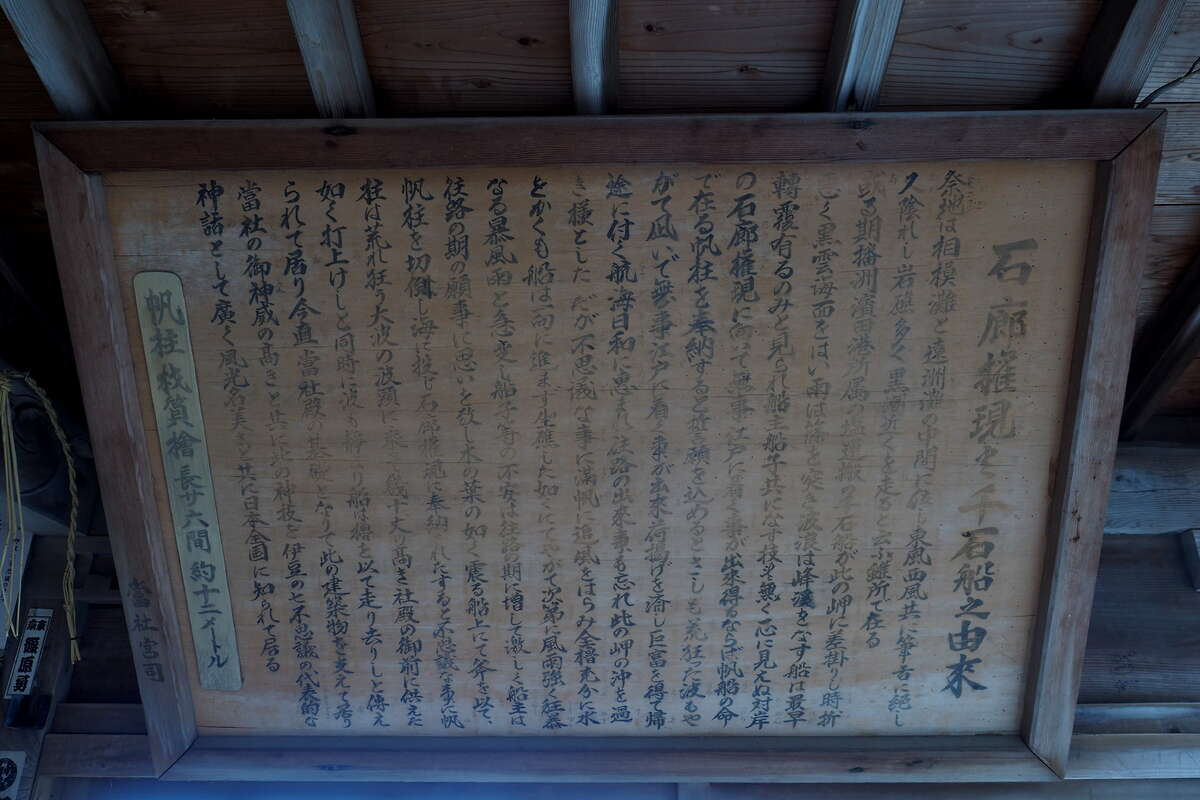 石廊権現と千石船之由来
祭神は相模灘と遠洲灘の中間に位し東風西風共に筆舌に絶し
又陰れし岩礁多く黒潮近くを走ると云ふ難所で在る
或る期播洲濱田港所属の塩運搬の千石船が此の岬に差掛りし時折
悪しく黒雲海面をはい雨は篠を突き波浪は峰渓をなす船は最早
轉覆有るのみと見られ船主船子共になす枝を無く一心に見えぬ対岸
の石廊権現に向って無事江戸に着く事が出来得るならば帆船の命
で在る帆柱を奉納すると誓願を込めるとさしも荒狂った波もや
がて凪いで無事江戸に着く事が出来荷揚げを済し巨富を得て帰
途に付く航海日和に恵まれ往路の出来事も忘れ此の岬の沖を過
き様とした だが不思議な事に満帆に追風をはらみ全櫓充分に水
をかくも船は一向に進ます生確した如くにてやがて次第に風雨強く狂暴
なる暴風雨と急変し船子等の不安は往路の期に増して激しく船主は
往路の期の願事に思いを致し木の葉の如く震る船上にて斧を以て、
帆柱を切倒し海に投じ石廊権現に奉納
柱は荒れ狂う大波の波頭に乗
高き社殿の御前に供えた
如く打上けしと同時に波も静
船は櫓を以て走り去りしと傳え
られて居り今直當社殿の基礎となりて此の建築物を支えて居り
當社の御神威の高きと共に此の神技を伊豆の七不思議の代表的な
神話として廣く風光
共に日本全国に知られて居る
帆柱
質檜 長サ六間 約十二メートル
當社宮司
篠原